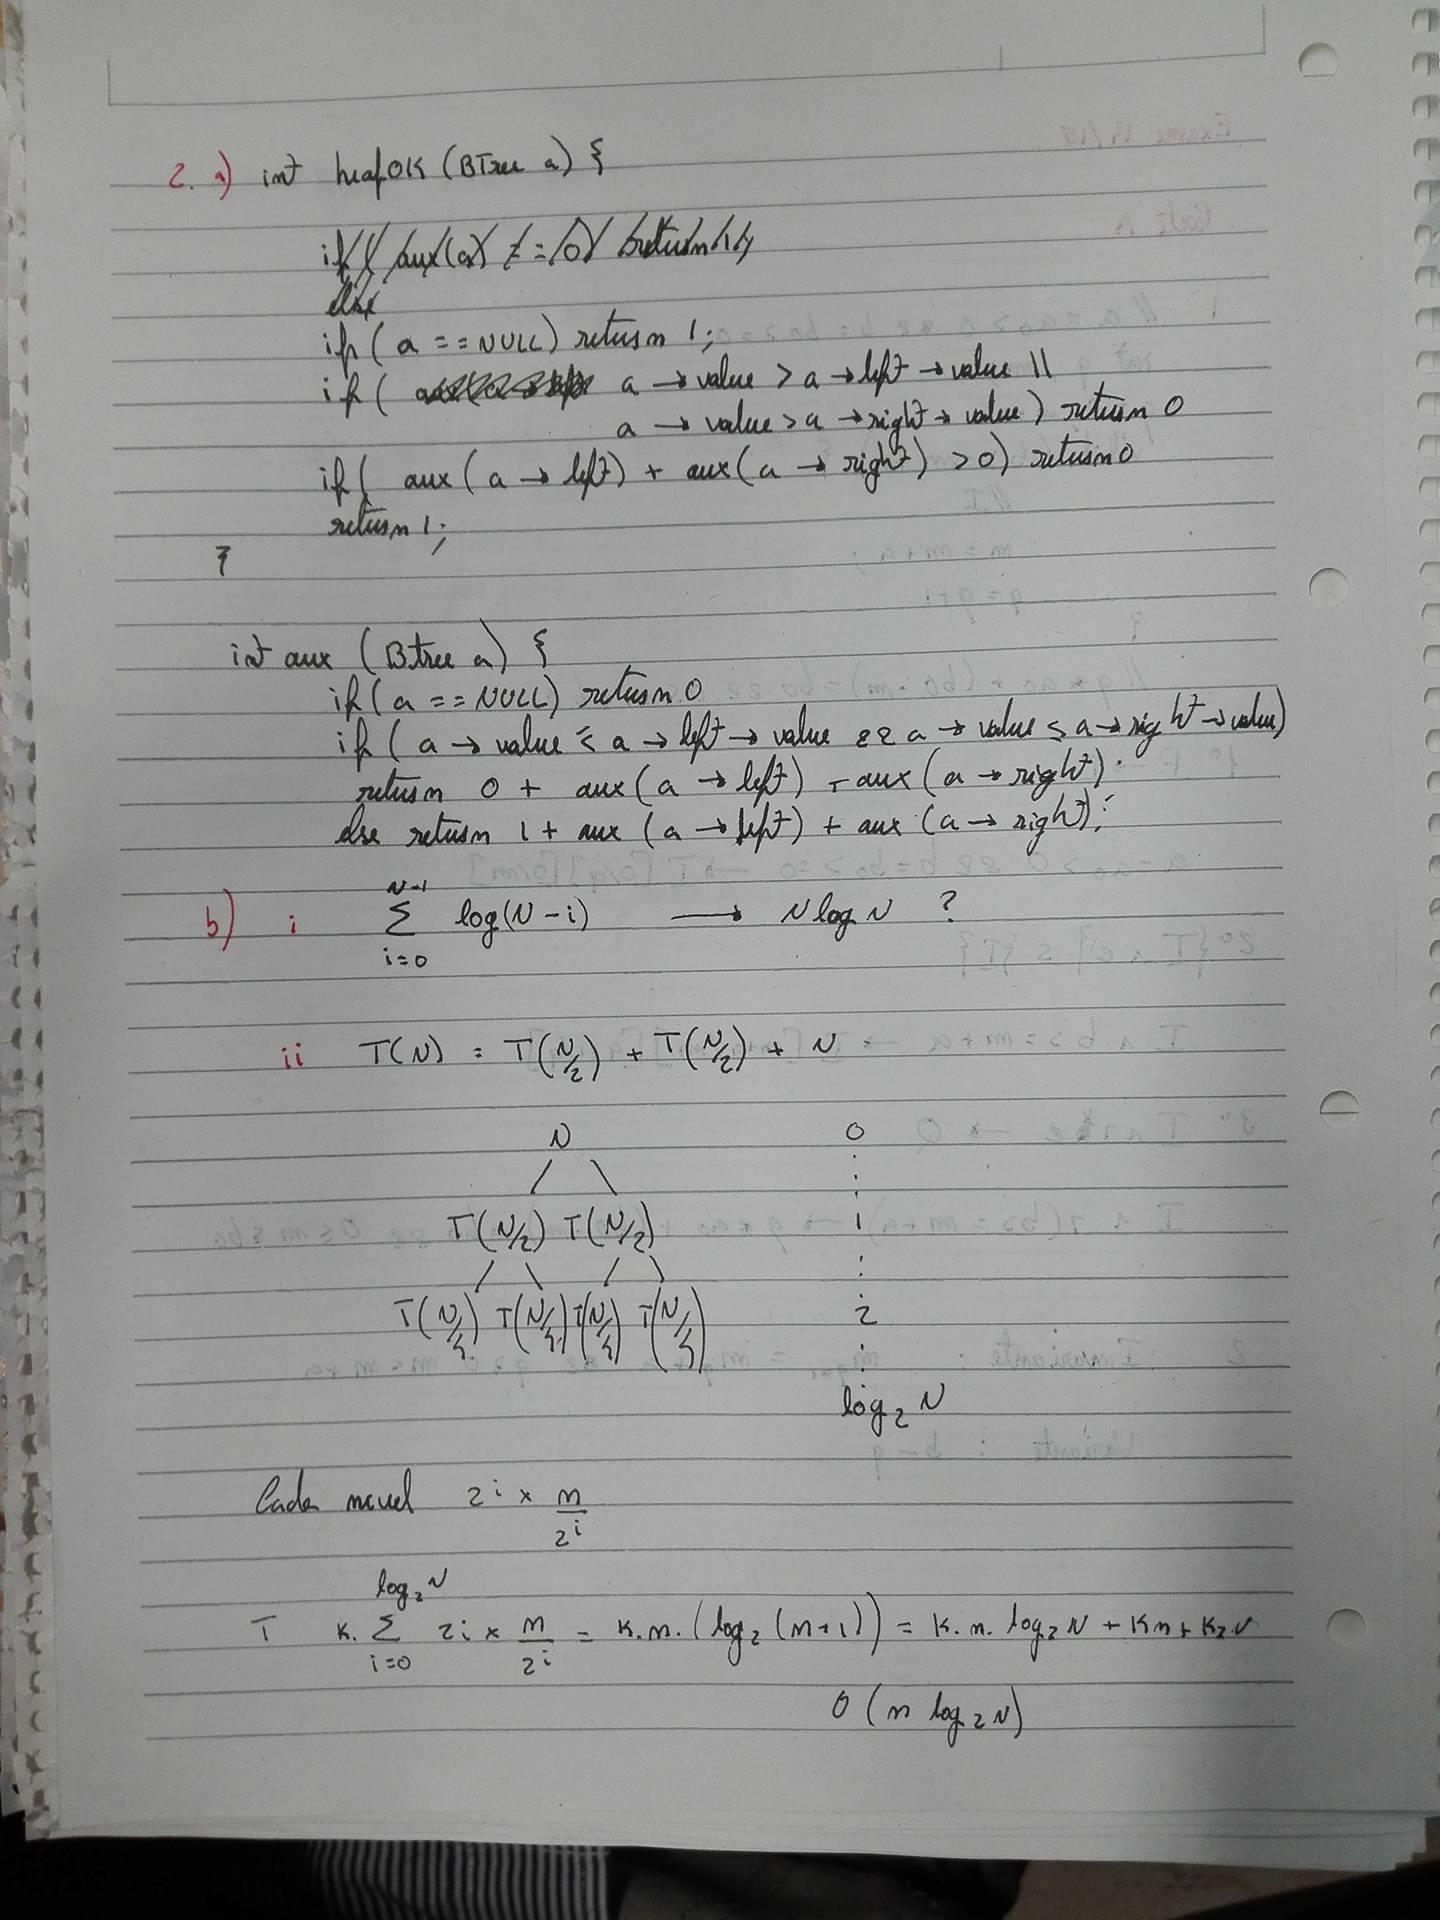 2. a) int heapOK (BTree a) {
if ( aux(a) == 0) return 1;
else
if ( a == NULL) return 1;
if ( a → value > a → left → value ||
a → value > a → right → value) return 0
if ( aux ( a → left) + aux ( a → right) > 0) return 0
return 1;
}
int aux ( Btree a) {
if ( a == NULL) return 0
if ( a → value ≤ a → left → value && a → value ≤ a → right → value)
return 0 + aux ( a → left) + aux ( a → right);
else return 1 + aux ( a → left) + aux ( a → right);
b) i N-1
Σ log(N-i) → N log N ?
i=0
ii T(N) = T(N/2) + T(N/2) + N
N 0
T(N/2) T(N/2) 1
T(N/4) T(N/4) T(N/4) T(N/4) 2
log₂ N
Cada nível 2^i × n/2^i
log₂ N
T K. Σ 2i × n/2^i = K.n. (log₂ (n+1)) = K.n. log₂ N + Kn + K₂N
i=0
O (n log₂ N)